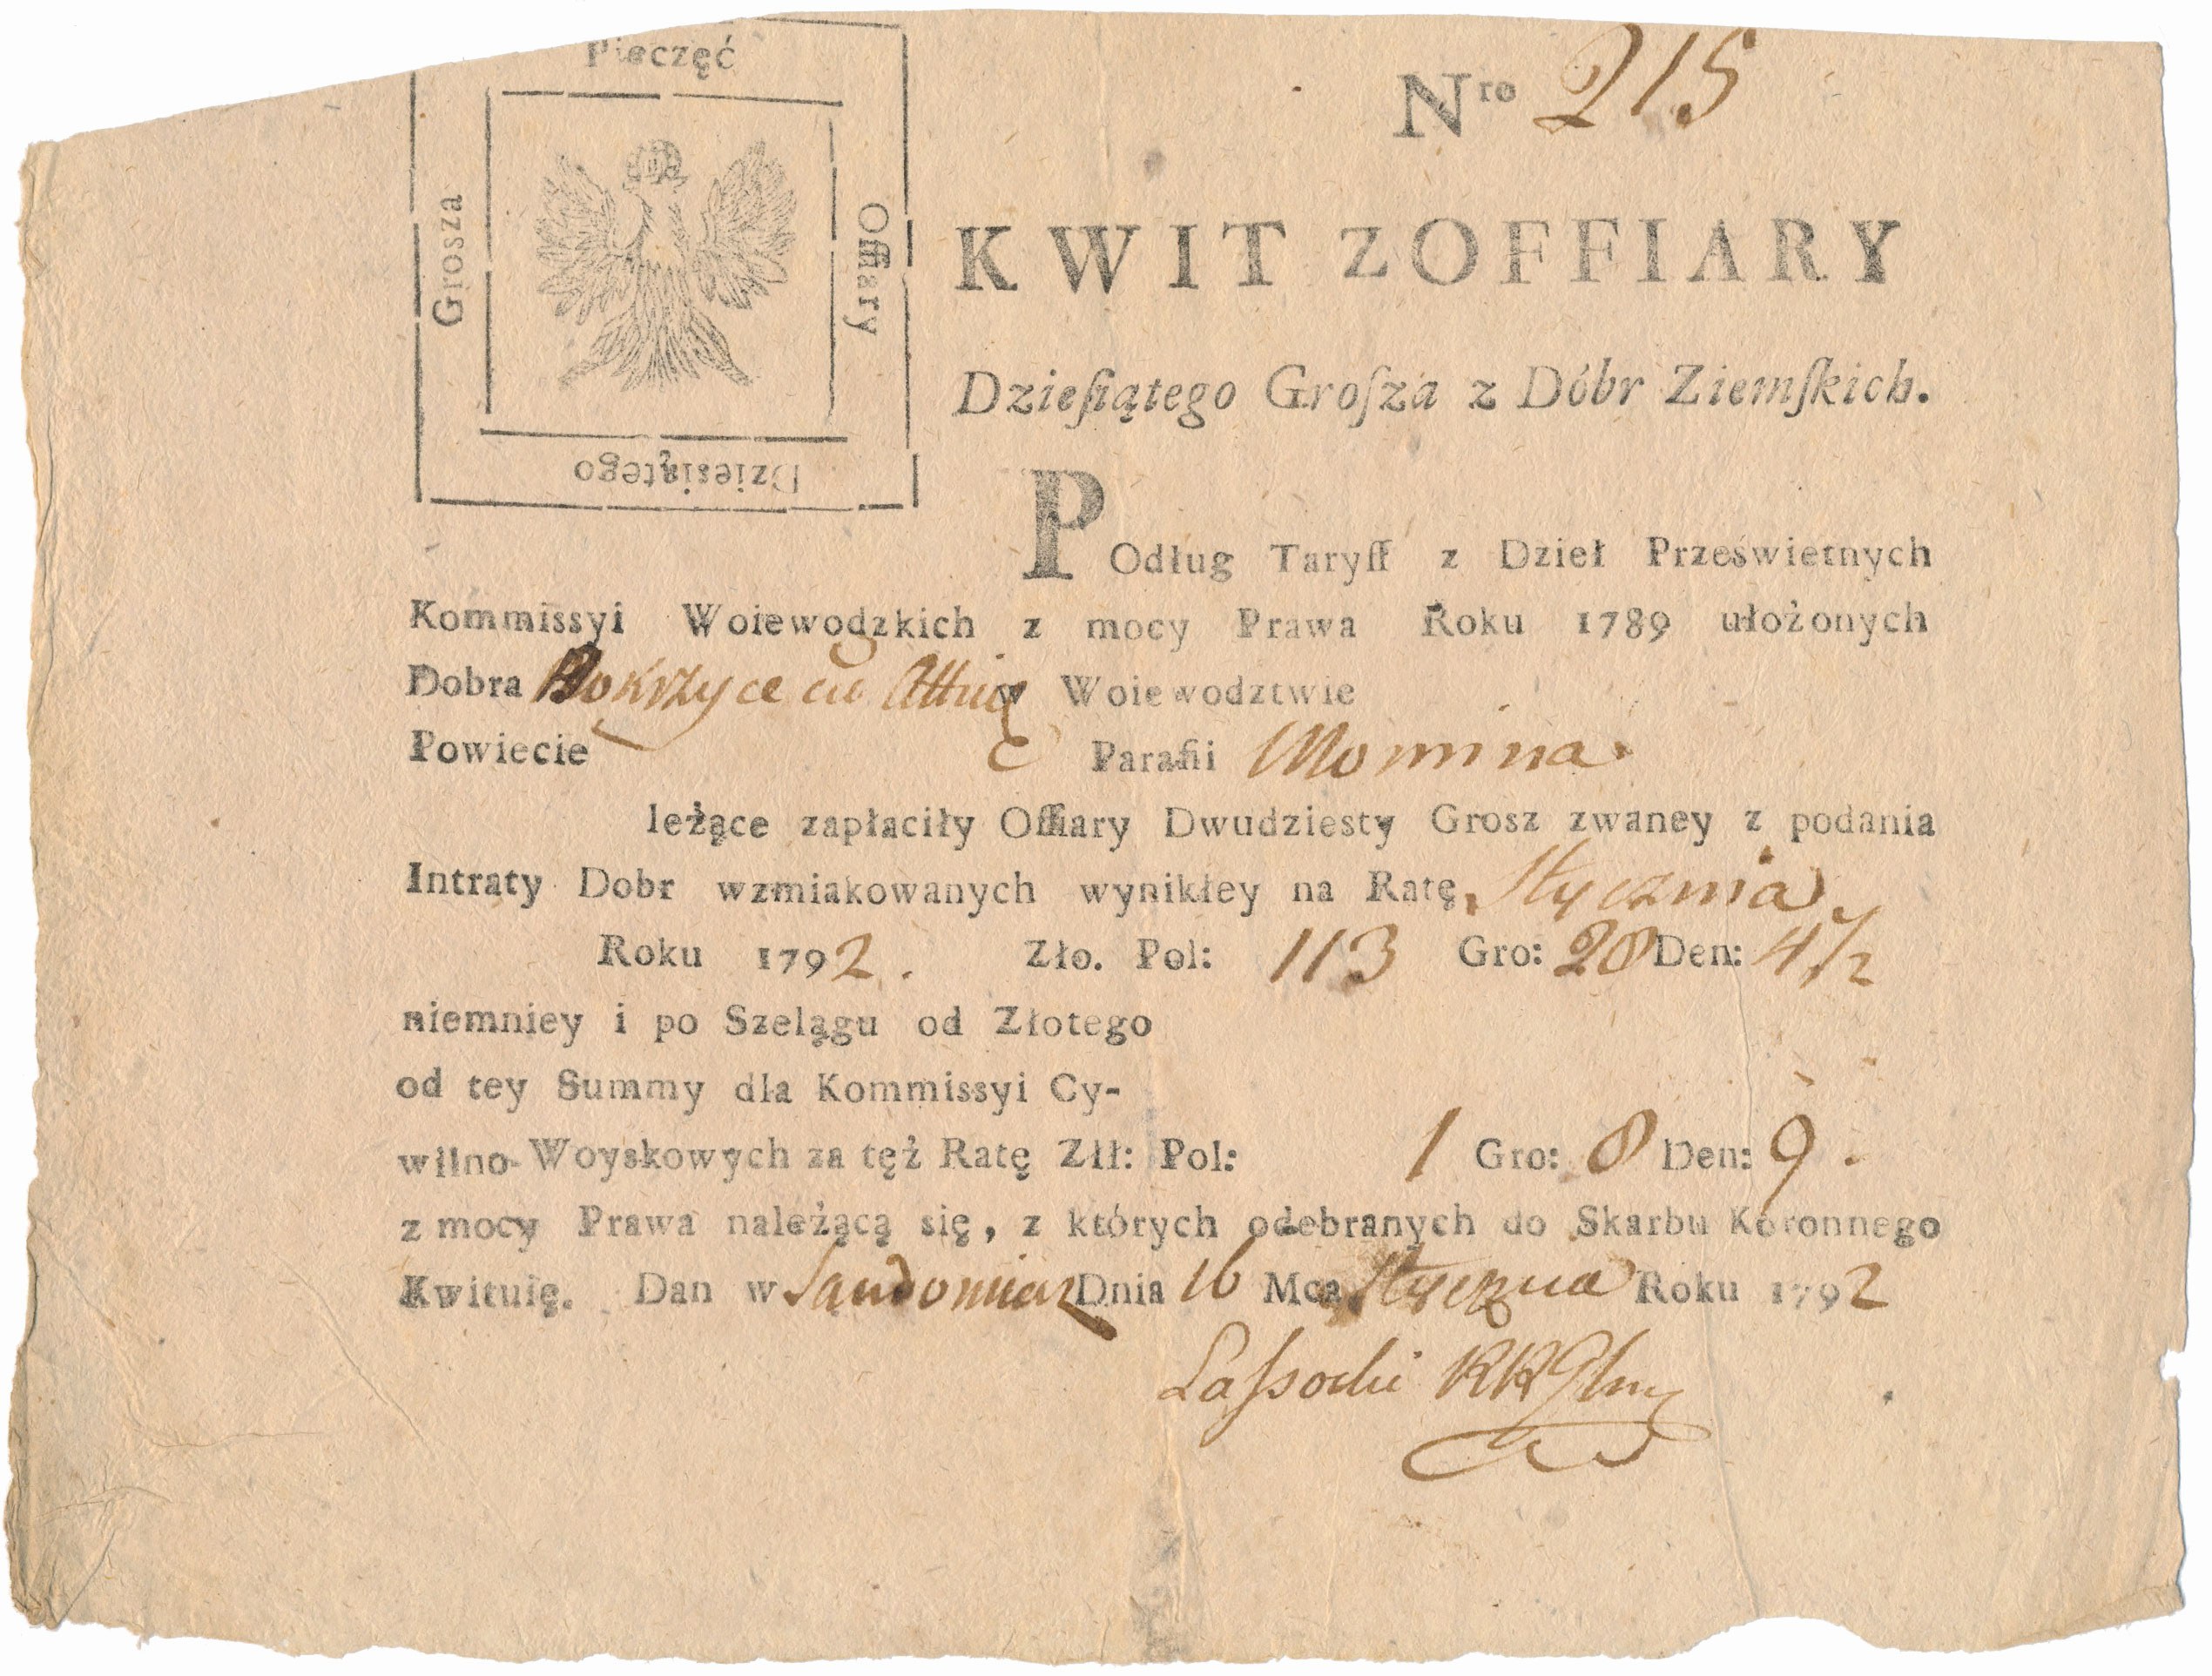 Pieczęć
Offiary
Dziesiątego
Grosza
Nro 215
KWIT Z OFFIARY
Dzieſiątego Groſza z Dóbr Ziemſkich.
POdług Taryff z Dzieł Prześwietnych
Kommissyi Woiewodzkich z mocy Prawa Roku 1789 ułożonych
Dobra w Woiewodztwie
Powiecie Parafii Momina
leżące zapłaciły Offiary Dwudziesty Grosz zwaney z podania
Intraty Dobr wzmiakowanych wynikłey na Ratę Stycznia
Roku 1792. Zło. Pol: 113 Gro: 20 Den: 4 1/2
niemniey i po Szelągu od Złotego
od tey Summy dla Kommissyi Cy-
wilno-Woyskowych za tęż Ratę Złł: Pol: 1 Gro: 8 Den: 9.
z mocy Prawa należącą się, z których odebranych do Skarbu Koronnego
Kwituię. Dan w Sandomirz Dnia 16 Mca Stycznia Roku 1792
Laſsocki